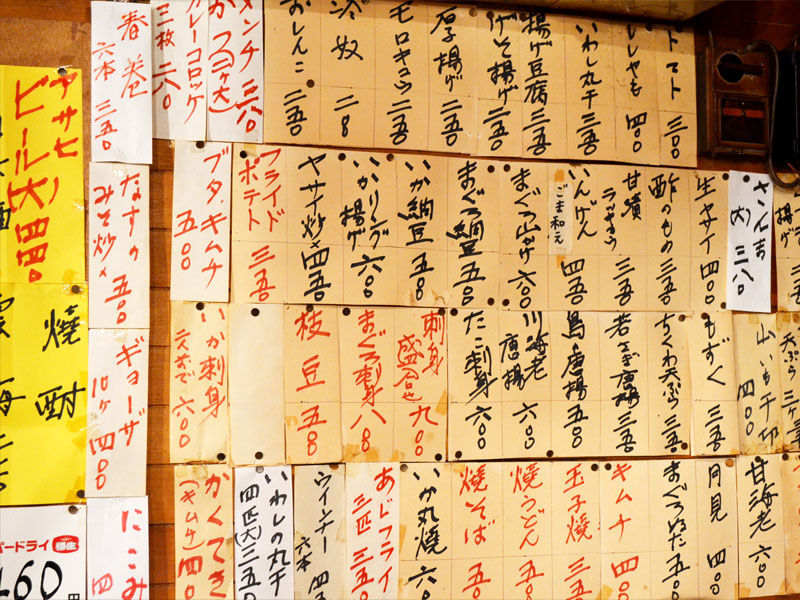 トマト 三〇〇
ししゃも 四〇〇
いわし丸干 三五〇
揚げ豆腐 三五〇
げそ揚げ 二五〇
厚子揚げ 二五〇
モロキュウ 二五〇
冷奴 二〇〇
おしんこ 二五〇
メンチかつ(二ヶ大) 三八〇
カレーコロッケ 三枚 二八〇
春巻 六本 三五〇
アサヒ
ビール(大) 四四〇
揚げ
さんま(大) 三八〇
生ヤサイ 四〇〇
酢のもの 三五〇
甘漬ラッキョウ 三五〇
いんげん ごま和え 四五〇
まぐろ山かけ 六〇〇
まぐろ納豆 五五〇
いか納豆 五五〇
いかリング揚げ 六〇〇
ヤサイ炒メ 四五〇
フライドポテト 三五〇
ブタ.キムチ 五〇〇
なすのみそ炒メ 五〇〇
天ぷら 三ヶ
山いも千切 四〇〇
もずく 三五〇
ちくわ天ぷら 三五〇
若さぎ唐揚 三五〇
鳥唐揚 五五〇
川海老唐揚 六〇〇
たこ刺身 六〇〇
刺身盛合せ 九〇〇
まぐろ刺身 八〇〇
枝豆 五五〇
いか刺身 六〇〇
ギョーザ 10ヶ 四〇〇
焼酎
甘海老 六〇〇
月見 四〇〇
まぐろぬた 五五〇
キムチ 四〇〇
玉子焼 三五
焼うどん 五五
焼そば 五五
いか丸焼 六〇〇
あじフライ 三匹 三五〇
ウインナー 六本 四五
いわしの丸干 四匹(大) 三五〇
かくてき(キムチ) 四〇〇
にこみ 四
パードライ
460円